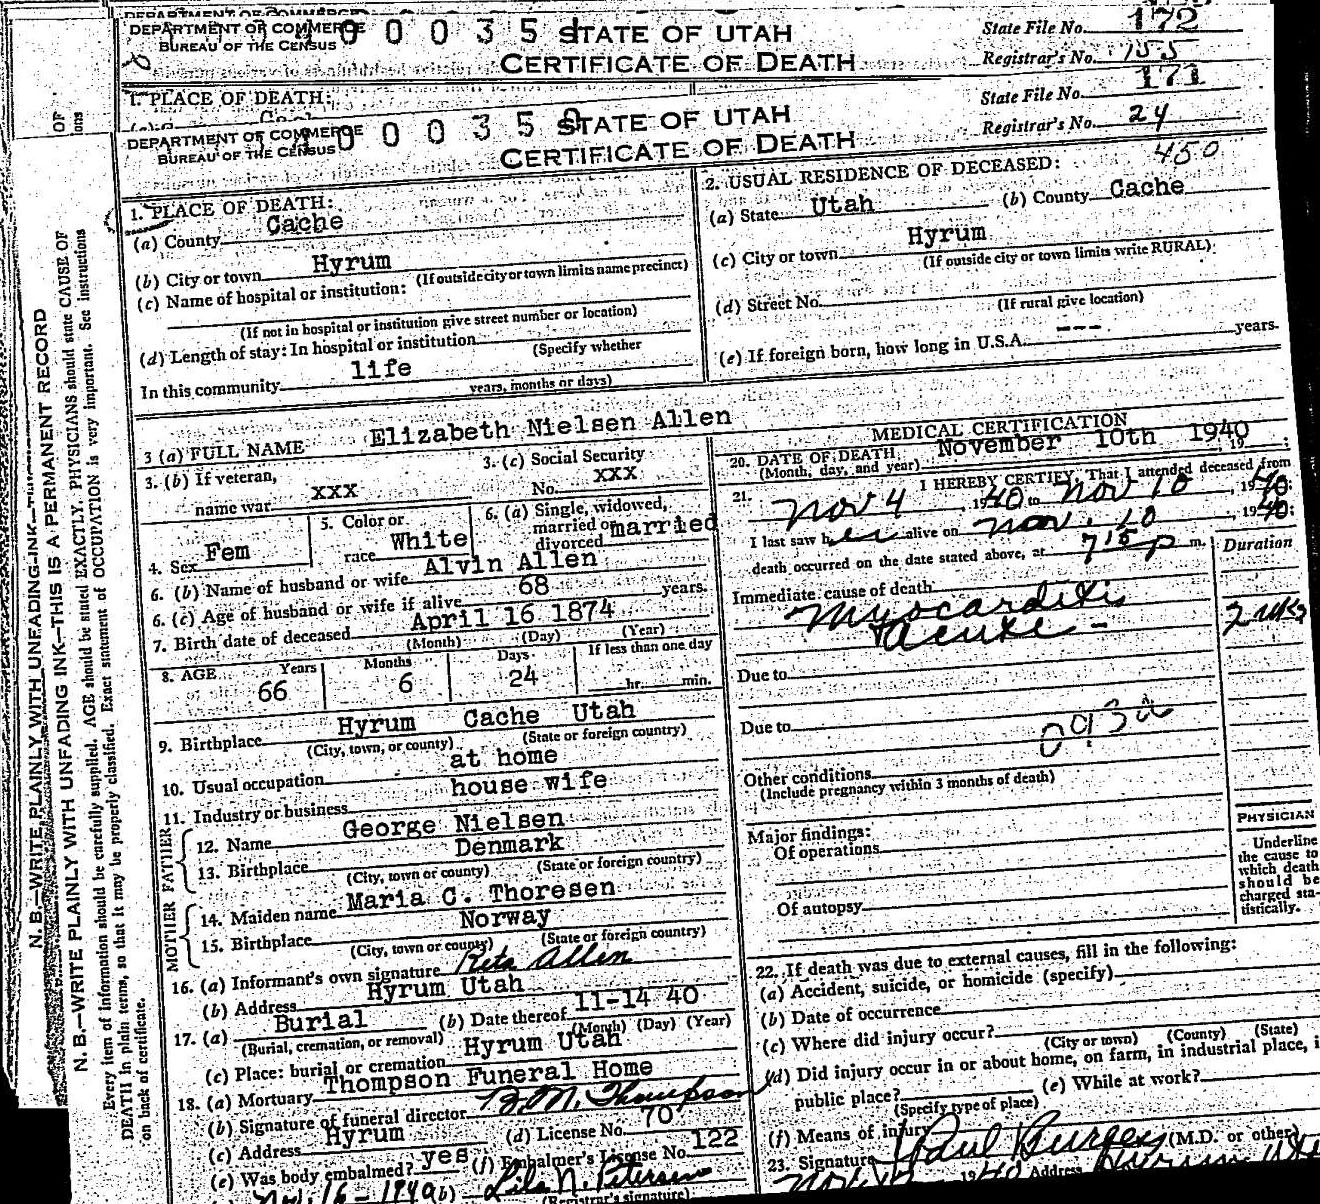 DEPARTMENT OF COMMERCE
BUREAU OF THE CENSUS
STATE OF UTAH
CERTIFICATE OF DEATH
State File No. 172
Registrar's No. 155
1. PLACE OF DEATH:
DEPARTMENT OF COMMERCE
BUREAU OF THE CENSUS
STATE OF UTAH
CERTIFICATE OF DEATH
State File No. 171
Registrar's No. 24
450
1. PLACE OF DEATH:
(a) County Cache
(b) City or town Hyrum
(If outside city or town limits name precinct)
(c) Name of hospital or institution:
(If not in hospital or institution give street number or location)
(d) Length of stay: In hospital or institution
(Specify whether
In this community life
years, months or days)
2. USUAL RESIDENCE OF DECEASED:
(a) State Utah (b) County Cache
(c) City or town Hyrum
(If outside city or town limits write RURAL)
(d) Street No.
(If rural give location)
(e) If foreign born, how long in U.S.A. --- years.
3 (a) FULL NAME Elizabeth Nielsen Allen
3. (b) If veteran,
name war xxx
3. (c) Social Security
No. xxx
4. Sex Fem
5. Color or
race White
6. (a) Single, widowed,
married or
divorced married
6. (b) Name of husband or wife Alvin Allen
6. (c) Age of husband or wife if alive 68 years.
7. Birth date of deceased April 16 1874
(Month) (Day) (Year)
8. AGE Years Months Days If less than one day
66 6 24 hr. min.
9. Birthplace Hyrum Cache Utah
(City, town, or county) (State or foreign country)
10. Usual occupation at home
11. Industry or business house wife
FATHER
12. Name George Nielsen
13. Birthplace Denmark
(City, town or county) (State or foreign country)
MOTHER
14. Maiden name Maria C. Thoresen
15. Birthplace Norway
(City, town or county) (State or foreign country)
16. (a) Informant's own signature Reta Allen
(b) Address Hyrum Utah
17. (a) Burial (b) Date thereof 11-14 40
(Burial, cremation, or removal) (Month) (Day) (Year)
(c) Place: burial or cremation Hyrum Utah
18. (a) Mortuary Thompson Funeral Home
(b) Signature of funeral director B.M. Thompson
(c) Address Hyrum (d) License No. 70
(e) Was body embalmed? yes (f) Embalmer's License No. 122
Nov. 16-1940 (b)
(Registrar's signature)
MEDICAL CERTIFICATION
20. DATE OF DEATH November 10th 1940, 19
(Month, day, and year)
21. I HEREBY CERTIFY, That I attended deceased from
Nov 4, 1940 to Nov 10, 1940;
I last saw her alive on Nov. 10, 1940;
death occurred on the date stated above, at 7 15 P m.
Duration
Immediate cause of death
Myocarditis
Acute - 2 wks
Due to
Due to
093a
Other conditions
(Include pregnancy within 3 months of death)
Major findings:
Of operations
Of autopsy
PHYSICIAN
Underline
the cause to
which death
should be
charged sta-
tistically.
22. If death was due to external causes, fill in the following:
(a) Accident, suicide, or homicide (specify)
(b) Date of occurrence
(c) Where did injury occur?
(City or town) (County) (State)
(d) Did injury occur in or about home, on farm, in industrial place, i
public place? (e) While at work?
(Specify type of place)
(f) Means of injury
23. Signature Paul Burgess (M.D. or other)
1940 Address Hyrum Utah
N. B.—WRITE PLAINLY WITH UNFADING INK—THIS IS A PERMANENT RECORD
Every item of information should be carefully supplied. AGE should be stated EXACTLY. PHYSICIANS should state CAUSE OF
DEATH in plain terms, so that it may be properly classified. Exact statement of OCCUPATION is very important. See instructions
on back of certificate.